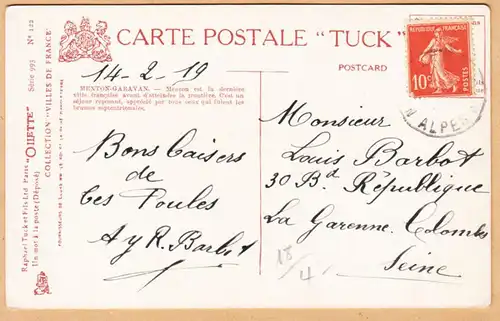 CARTE POSTALE "TUCK"
POSTCARD
14-2-19
MENTON-GARAVAN. — Menton est la dernière
ville française avant d'atteindre la frontière. C'est un
séjour reposant, apprécié par tous ceux qui fuient les
brumes septentrionales.
Bons baisers
de
tes Poules
A y R. Barbot
Monsieur
Louis Barbot
30 Bd République
La Garenne-Colombes
Seine
18/4
RÉPUBLIQUE FRANÇAISE
10c
POSTES
ALPES
Raphael Tuck et Fils Ltd. Paris "OILETTE" Série 993 No 122
Un mot à la poste (Déposé) COLLECTION "VILLES DE FRANCE"